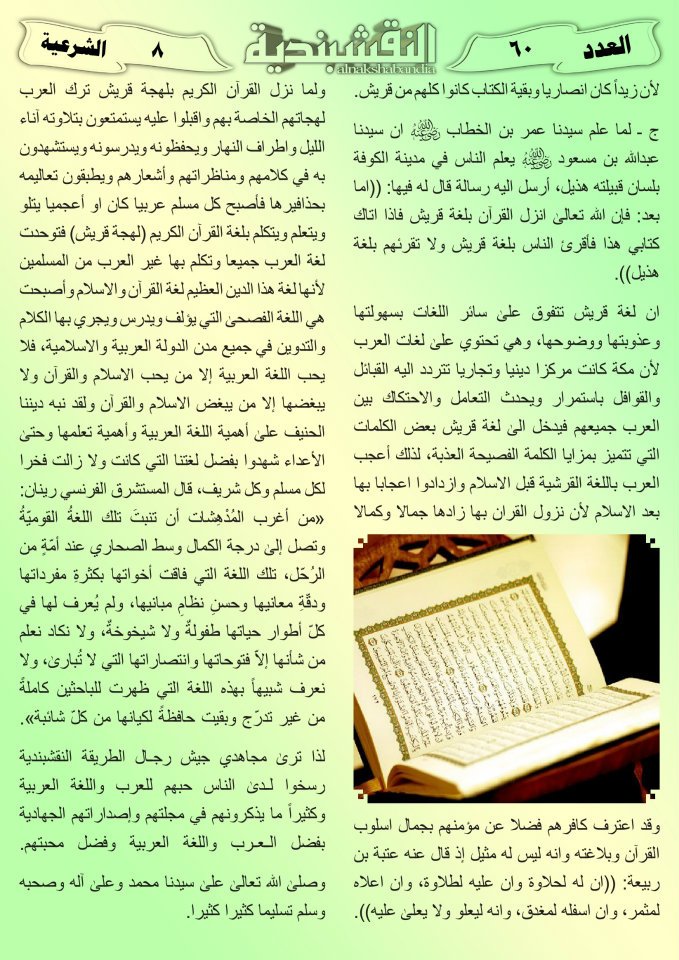 العدد
٦٠
النقشبندية
alnakshabandia
٨
الشرعية
لأن زيداً كان انصاريا وبقية الكتاب كانوا كلهم من قريش.
ج ـ لما علم سيدنا عمر بن الخطاب ان سيدنا
عبدالله بن مسعود يعلم الناس في مدينة الكوفة
بلسان قبيلته هذيل، أرسل اليه رسالة قال له فيها: ((اما
بعد: فإن الله تعالىٰ انزل القرآن بلغة قريش فاذا اتاك
كتابي هذا فأقرئ الناس بلغة قريش ولا تقرئهم بلغة
هذيل)).
ان لغة قريش تتفوق علىٰ سائر اللغات بسهولتها
وعذوبتها ووضوحها، وهي تحتوي علىٰ لغات العرب
لأن مكة كانت مركزا دينيا وتجاريا تتردد اليه القبائل
والقوافل باستمرار ويحدث التعامل والاحتكاك بين
العرب جميعهم فيدخل الىٰ لغة قريش بعض الكلمات
التي تتميز بمزايا الكلمة الفصيحة العذبة، لذلك أعجب
العرب باللغة القرشية قبل الاسلام وازدادوا اعجابا بها
بعد الاسلام لأن نزول القران بها زادها جمالا وكمالا
وقد اعترف كافرهم فضلا عن مؤمنهم بجمال اسلوب
القرآن وبلاغته وانه ليس له مثيل إذ قال عنه عتبة بن
ربيعة: ((ان له لحلاوة وان عليه لطلاوة، وان اعلاه
لمثمر، وان اسفله لمغدق، وانه ليعلو ولا يعلىٰ عليه)).
ولما نزل القرآن الكريم بلهجة قريش ترك العرب
لهجاتهم الخاصة بهم واقبلوا عليه يستمتعون بتلاوته آناء
الليل واطراف النهار ويحفظونه ويدرسونه ويستشهدون
به في كلامهم ومناظراتهم وأشعارهم ويطبقون تعاليمه
بحذافيرها فأصبح كل مسلم عربيا كان او أعجميا يتلو
ويتعلم ويتكلم بلغة القرآن الكريم (لهجة قريش) فتوحدت
لغة العرب جميعا وتكلم بها غير العرب من المسلمين
لأنها لغة هذا الدين العظيم لغة القرآن والاسلام وأصبحت
هي اللغة الفصحىٰ التي يؤلف ويدرس ويجري بها الكلام
والتدوين في جميع مدن الدولة العربية والاسلامية، فلا
يحب اللغة العربية إلا من يحب الاسلام والقرآن ولا
يبغضها إلا من يبغض الاسلام والقرآن ولقد نبه ديننا
الحنيف علىٰ أهمية اللغة العربية وأهمية تعلمها وحتىٰ
الأعداء شهدوا بفضل لغتنا التي كانت ولا زالت فخرا
لكل مسلم وكل شريف، قال المستشرق الفرنسي رينان:
«من أغرب المُدْهِشات أن تنبتَ تلك اللغةُ القوميّةُ
وتصل إلىٰ درجة الكمال وسط الصحاري عند أمّةٍ من
الرُحّل، تلك اللغة التي فاقت أخواتها بكثرةِ مفرداتها
ودقّةِ معانيها وحسنِ نظامِ مبانيها، ولم يُعرف لها في
كلّ أطوار حياتها طفولةٌ ولا شيخوخةٌ، ولا نكاد نعلم
من شأنها إلاّ فتوحاتها وانتصاراتها التي لا تُبارىٰ، ولا
نعرف شبيهاً بهذه اللغة التي ظهرت للباحثين كاملةً
من غير تدرّج وبقيت حافظةً لكيانها من كلّ شائبة».
لذا ترىٰ مجاهدي جيش رجال الطريقة النقشبندية
رسخوا لدىٰ الناس حبهم للعرب واللغة العربية
وكثيراً ما يذكرونهم في مجلتهم وإصداراتهم الجهادية
بفضل العرب واللغة العربية وفضل محبتهم.
وصلىٰ الله تعالىٰ علىٰ سيدنا محمد وعلىٰ آله وصحبه
وسلم تسليما كثيرا كثيرا.